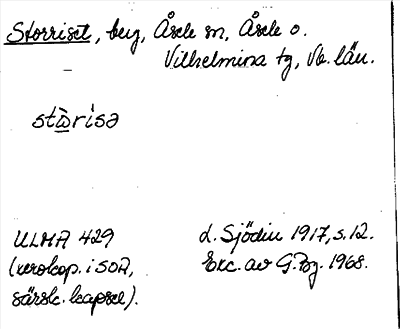 Storriset, berg, Åsele sn, Åsele o.
Vilhelmina tg, Vb. län.
stὼrisə
ULMA 429
(xerokop. i SOA,
särsk. kapsel).
L. Sjödin 1917, s. 12.
Exc. av G. Bg. 1968.